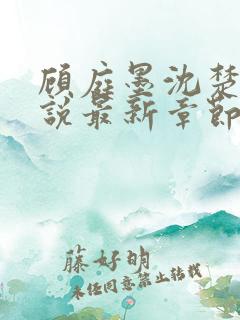 顾庭墨沈楚
说最新章节
藤好明
未经同意禁止转载